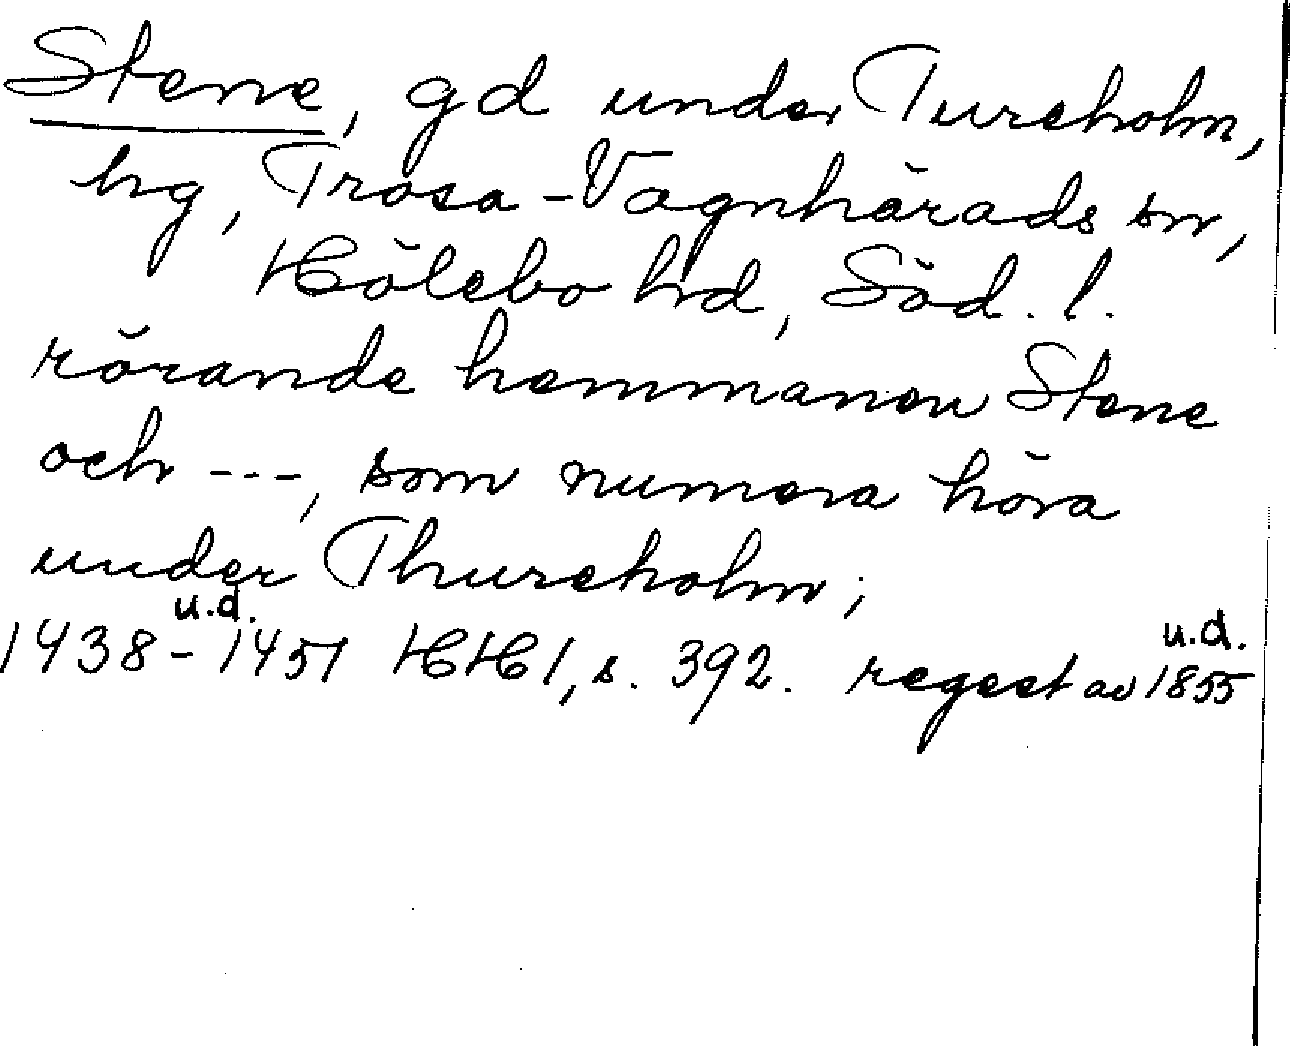 Stene, gd under Tureholm,
hg, Trosa-Vagnhärads sn,
Hölebo hd, Söd. l.
rörande hemmanen Stene
och ---, som numera höra
under Thureholm;
u.d. u.d.
1438-1451 HH 1, s. 392. regest av 1855